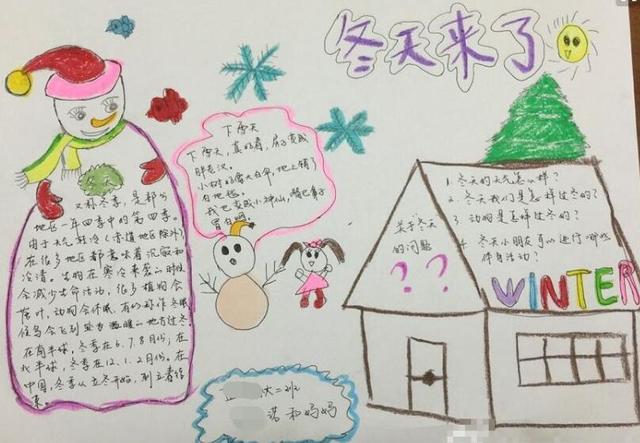 冬天来了
下雪天
下雪天，真好看，房子变成
胖老汉。
小树好像大白伞，地上铺了
白地毯。
我也变成小神仙，嘴巴鼻子
冒白烟。
又称冬季，是部分
地区一年四季中的第四季。
由于天气较冷（赤道地区除外）
在很多地区都意味着沉寂和
冷清。生物在寒冷来袭的时候
会减少生命活动，很多植物会
落叶，动物会休眠，有的称作冬眠。
候鸟会飞到较为温暖的地方过冬。
在南半球，冬季在6、7、8月份；在
北半球，冬季在12、1、2月份。在
中国，冬季从立冬开始，到立春结
束。
关于冬天
的问题
？？
1. 冬天的天气怎么样？
2. 冬天我们是怎样过冬的？
3. 动物是怎样过冬的？
4. 冬天小朋友可以进行哪些
体育活动？
WINTER
大二班
诺和妈妈